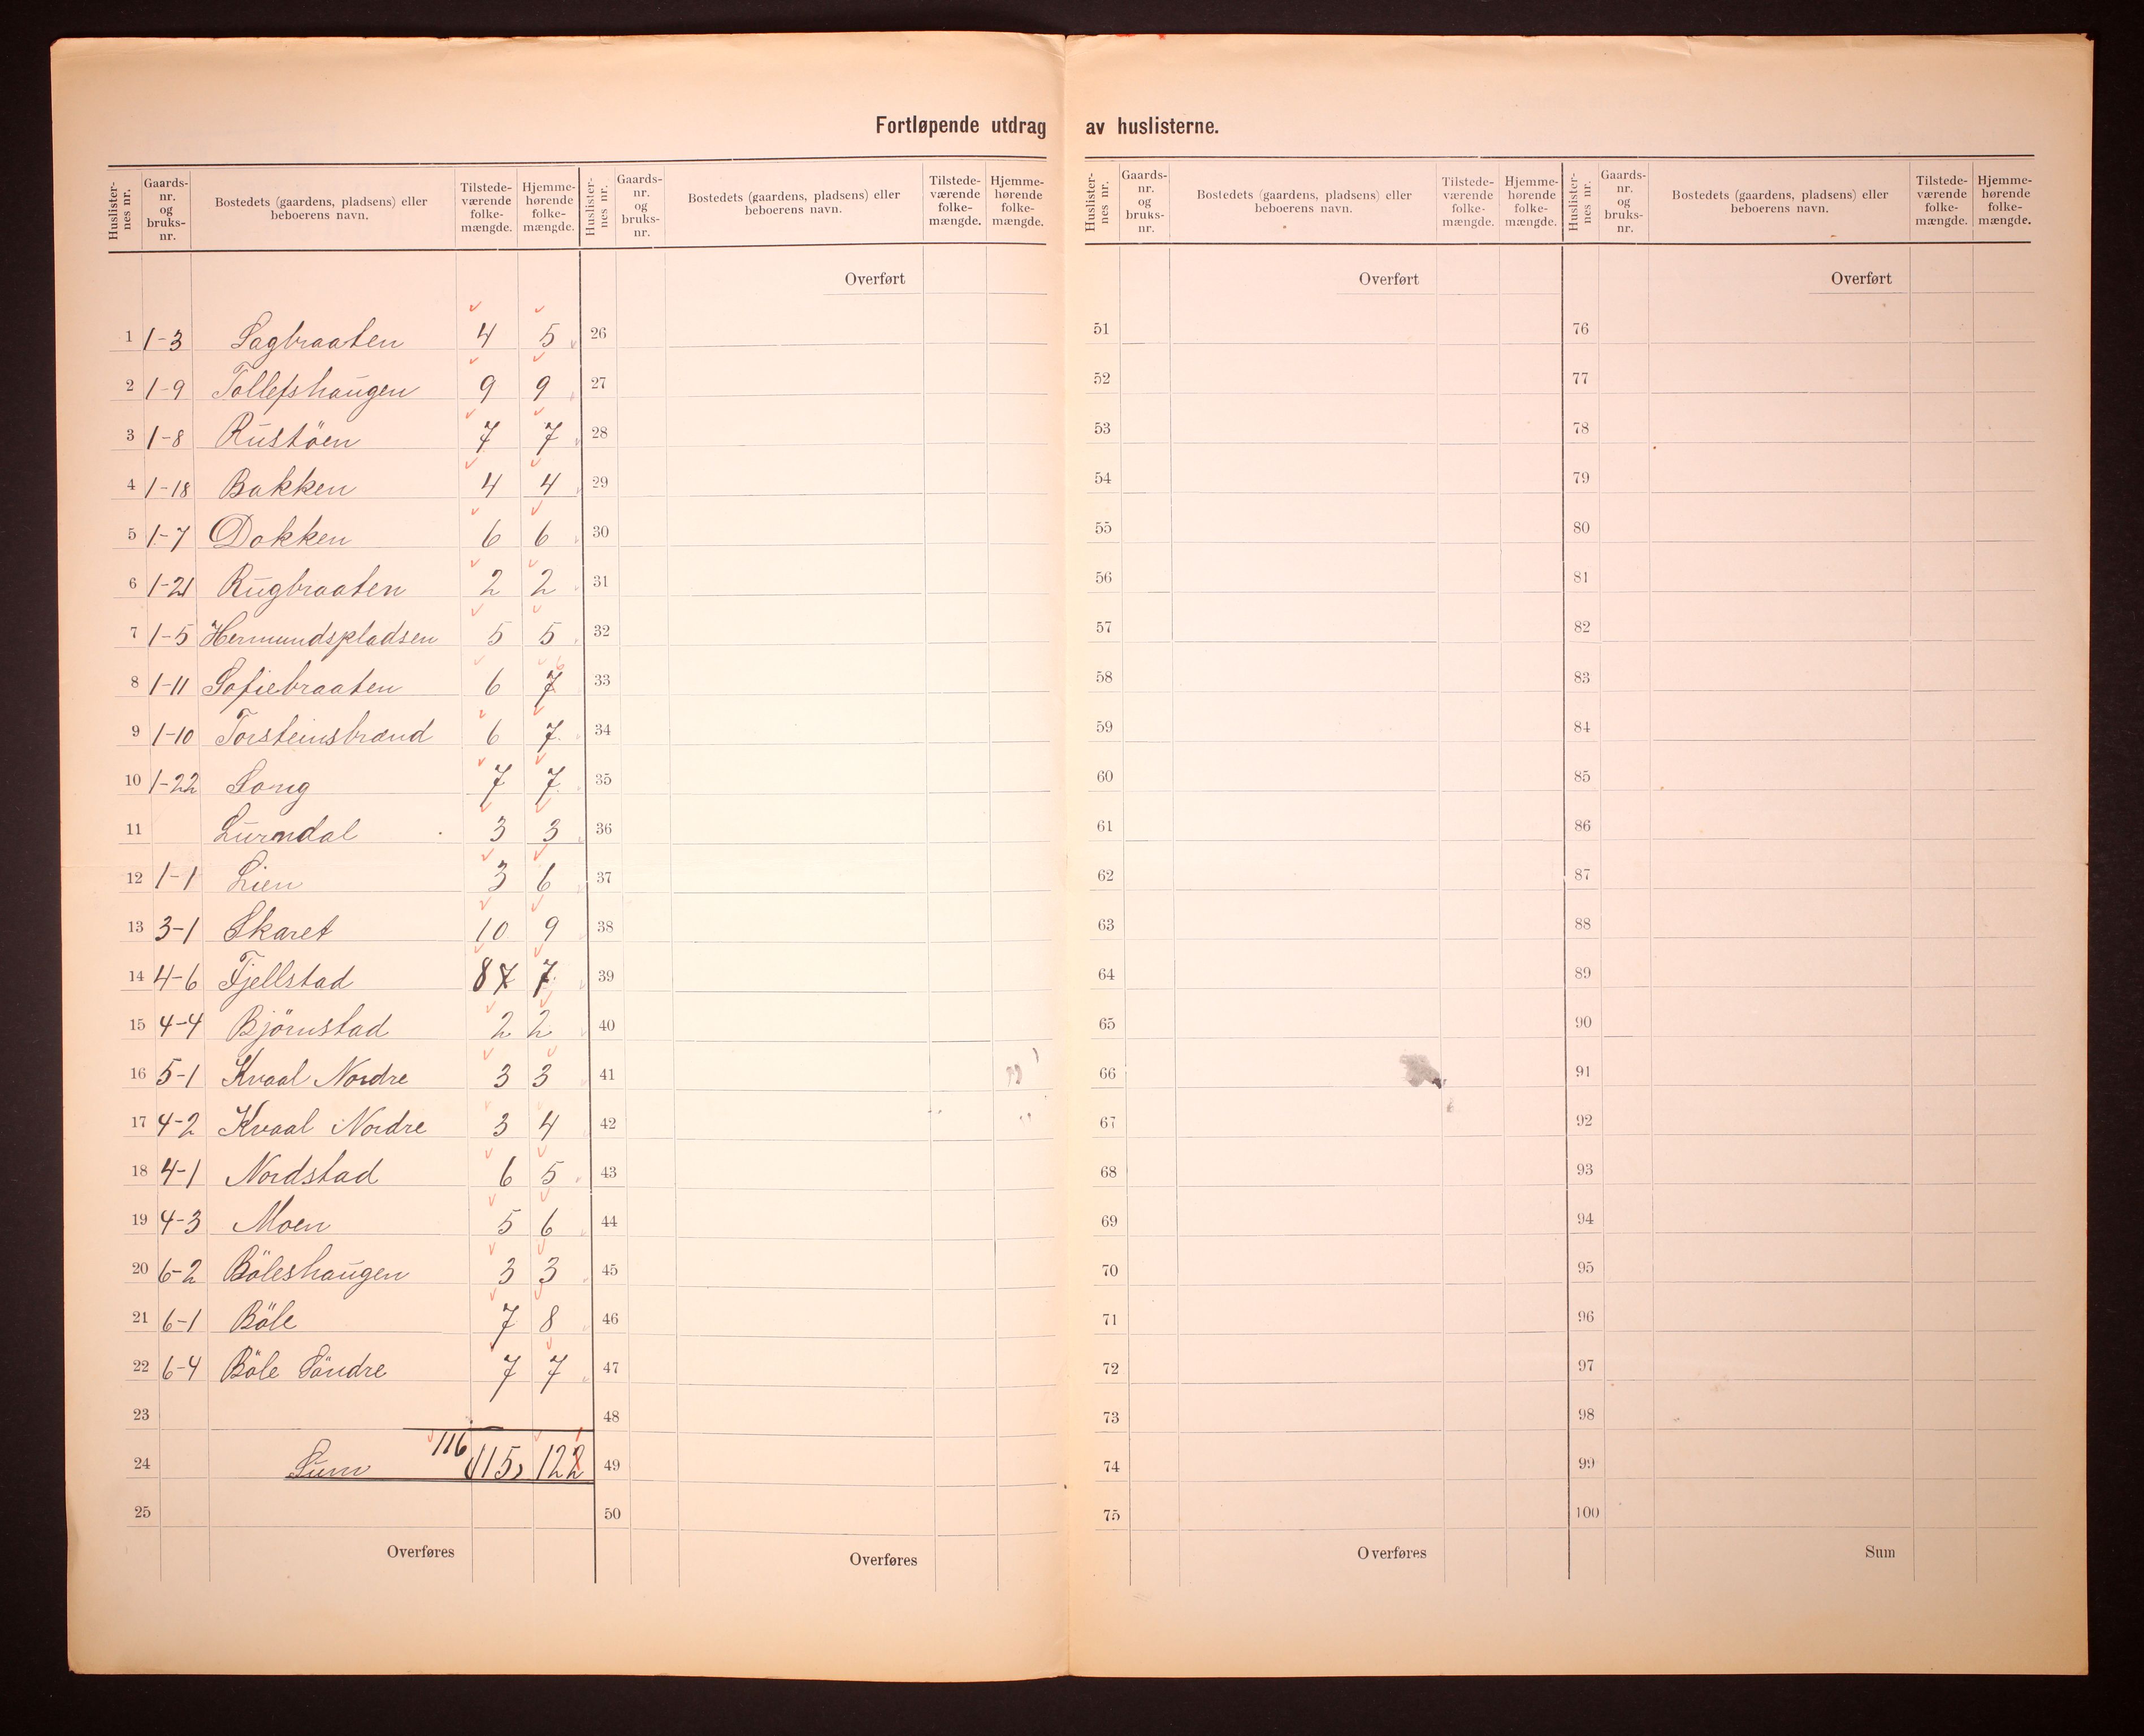 Fortløpende utdrag av huslisterne.
Huslister-nes nr. | Gaards-nr. og bruks-nr. | Bostedets (gaardens, pladsens) eller beboerens navn. | Tilstede-værende folke-mængde. | Hjemme-hørende folke-mængde.
1 1-3 Sagbraaten 4 5
2 1-9 Tollefshaugen 9 9
3 1-8 Rustöen 7 7
4 1-18 Bakken 4 4
5 1-7 Dokken 6 6
6 1-21 Rugbraaten 2 2
7 1-5 Hermundspladsen 5 5
8 1-11 Sofiebraaten 6 7 6
9 1-10 Torsteinsbrænd 6 7
10 1-22 Song 7 7
11 Lurndal 3 3
12 1-1 Lien 3 6
13 3-1 Skaret 10 9
14 4-6 Fjellstad 8 7 7
15 4-4 Björnstad 2 2
16 5-1 Kvaal Nordre 3 3
17 4-2 Kvaal Nordre 3 4
18 4-1 Nordstad 6 5
19 4-3 Moen 5 6
20 6-2 Böleshaugen 3 3
21 6-1 Böle 7 8
22 6-4 Böle Söndre 7 7
23
24 Sum 116 115 122 1
25
Overføres
Huslister-nes nr. | Gaards-nr. og bruks-nr. | Bostedets (gaardens, pladsens) eller beboerens navn. | Tilstede-værende folke-mængde. | Hjemme-hørende folke-mængde.
Overført
26
27
28
29
30
31
32
33
34
35
36
37
38
39
40
41
42
43
44
45
46
47
48
49
50
Overføres
Huslister-nes nr. | Gaards-nr. og bruks-nr. | Bostedets (gaardens, pladsens) eller beboerens navn. | Tilstede-værende folke-mængde. | Hjemme-hørende folke-mængde.
Overført
51
52
53
54
55
56
57
58
59
60
61
62
63
64
65
66
67
68
69
70
71
72
73
74
75
Overføres
Huslister-nes nr. | Gaards-nr. og bruks-nr. | Bostedets (gaardens, pladsens) eller beboerens navn. | Tilstede-værende folke-mængde. | Hjemme-hørende folke-mængde.
Overført
76
77
78
79
80
81
82
83
84
85
86
87
88
89
90
91
92
93
94
95
96
97
98
99
100
Sum